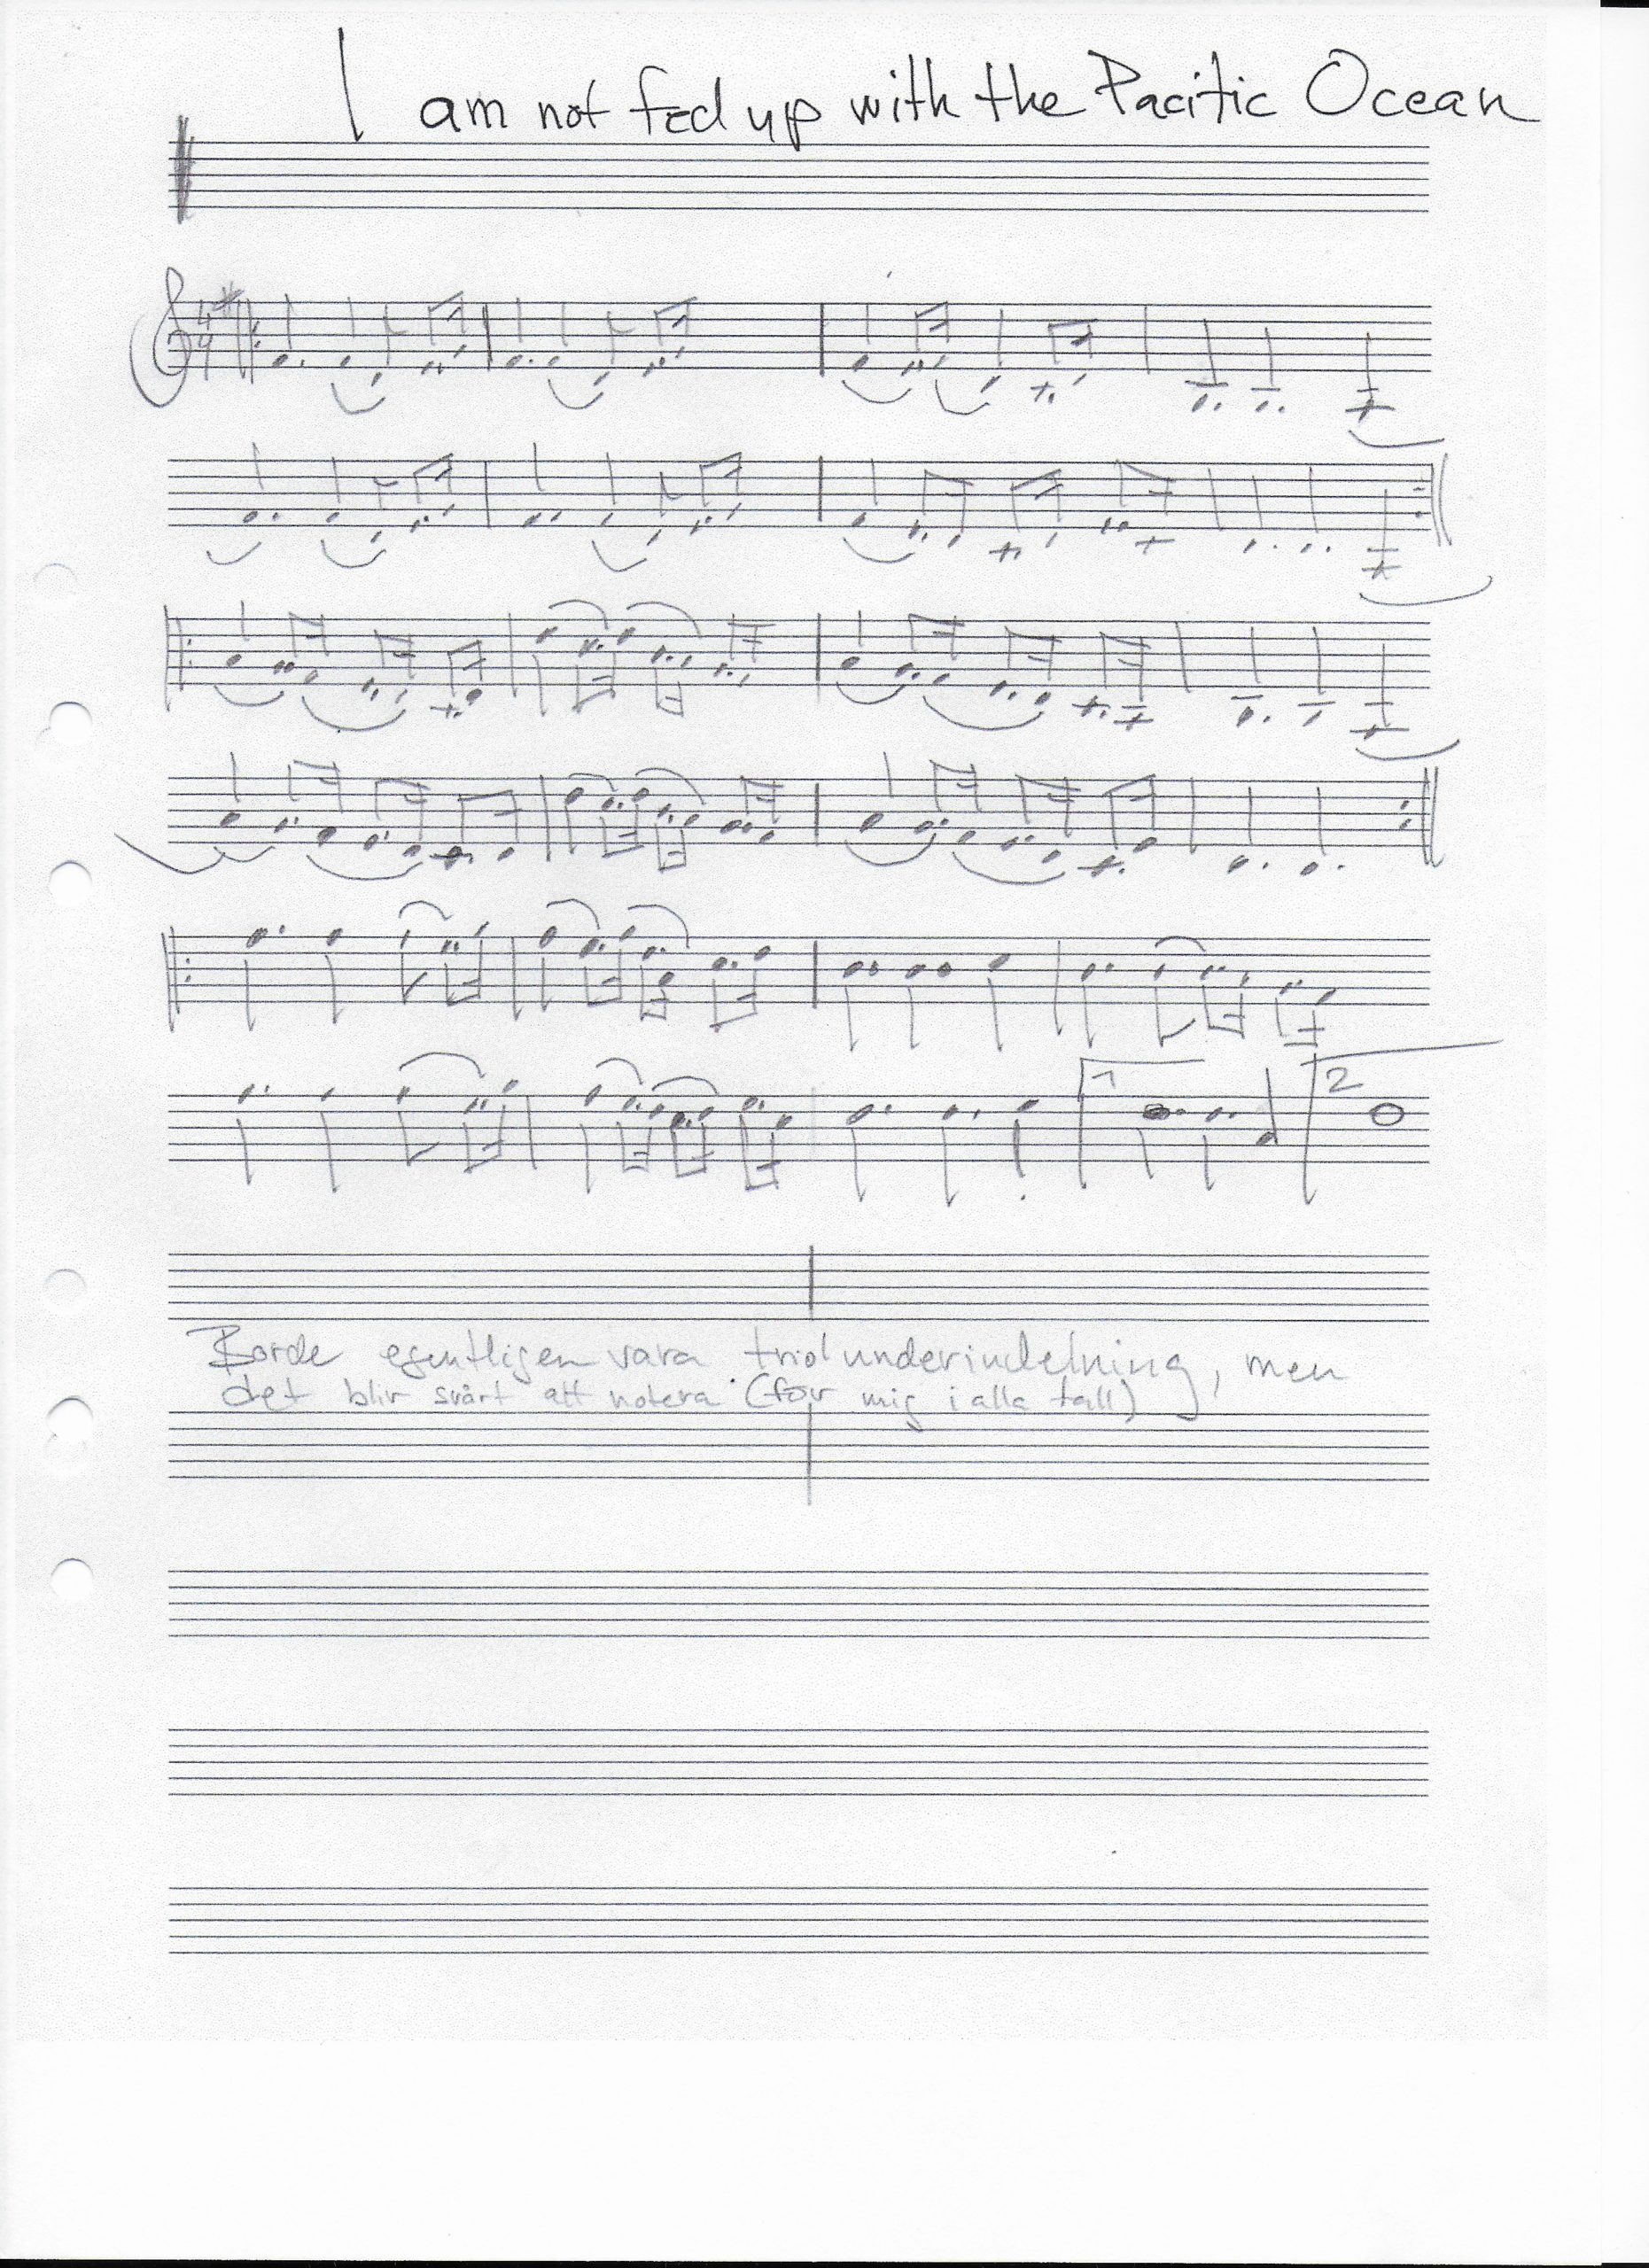 I am not fed up with the Pacific Ocean
4
4
1
2
Borde egentligen vara triolunderindelning, men
det blir svårt att notera (för mig i alla fall)